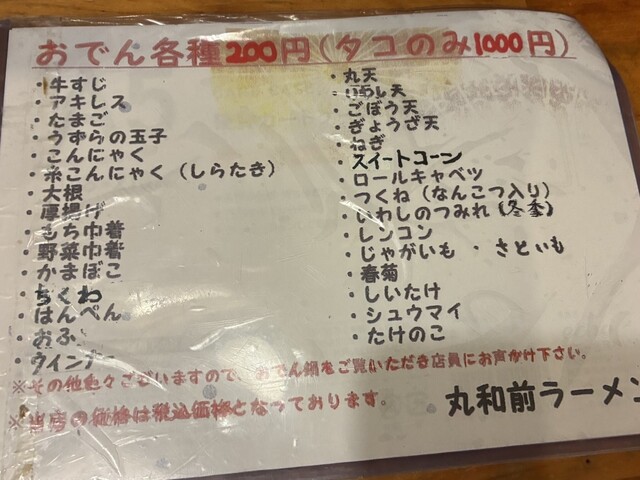 おでん各種200円(タコのみ1000円)
・牛すじ
・アキレス
・たまご
・うずらの玉子
・こんにゃく
・糸こんにゃく(しらたき)
・大根
・厚揚げ
・もち巾着
・野菜巾着
・かまぼこ
・ちくわ
・はんぺん
・おふ
・ウインナー
・丸天
・いわし天
・ごぼう天
・ぎょうざ天
・ねぎ
・スイートコーン
・ロールキャベツ
・つくね(なんこつ入り)
・いわしのつみれ(冬季)
・レンコン
・じゃがいも ・さといも
・春菊
・しいたけ
・シュウマイ
・たけのこ
※その他色々ございますので、おでん鍋をご覧いただき店員にお声がけ下さい。
※当店の価格は税込価格となっております。
丸和前ラーメン